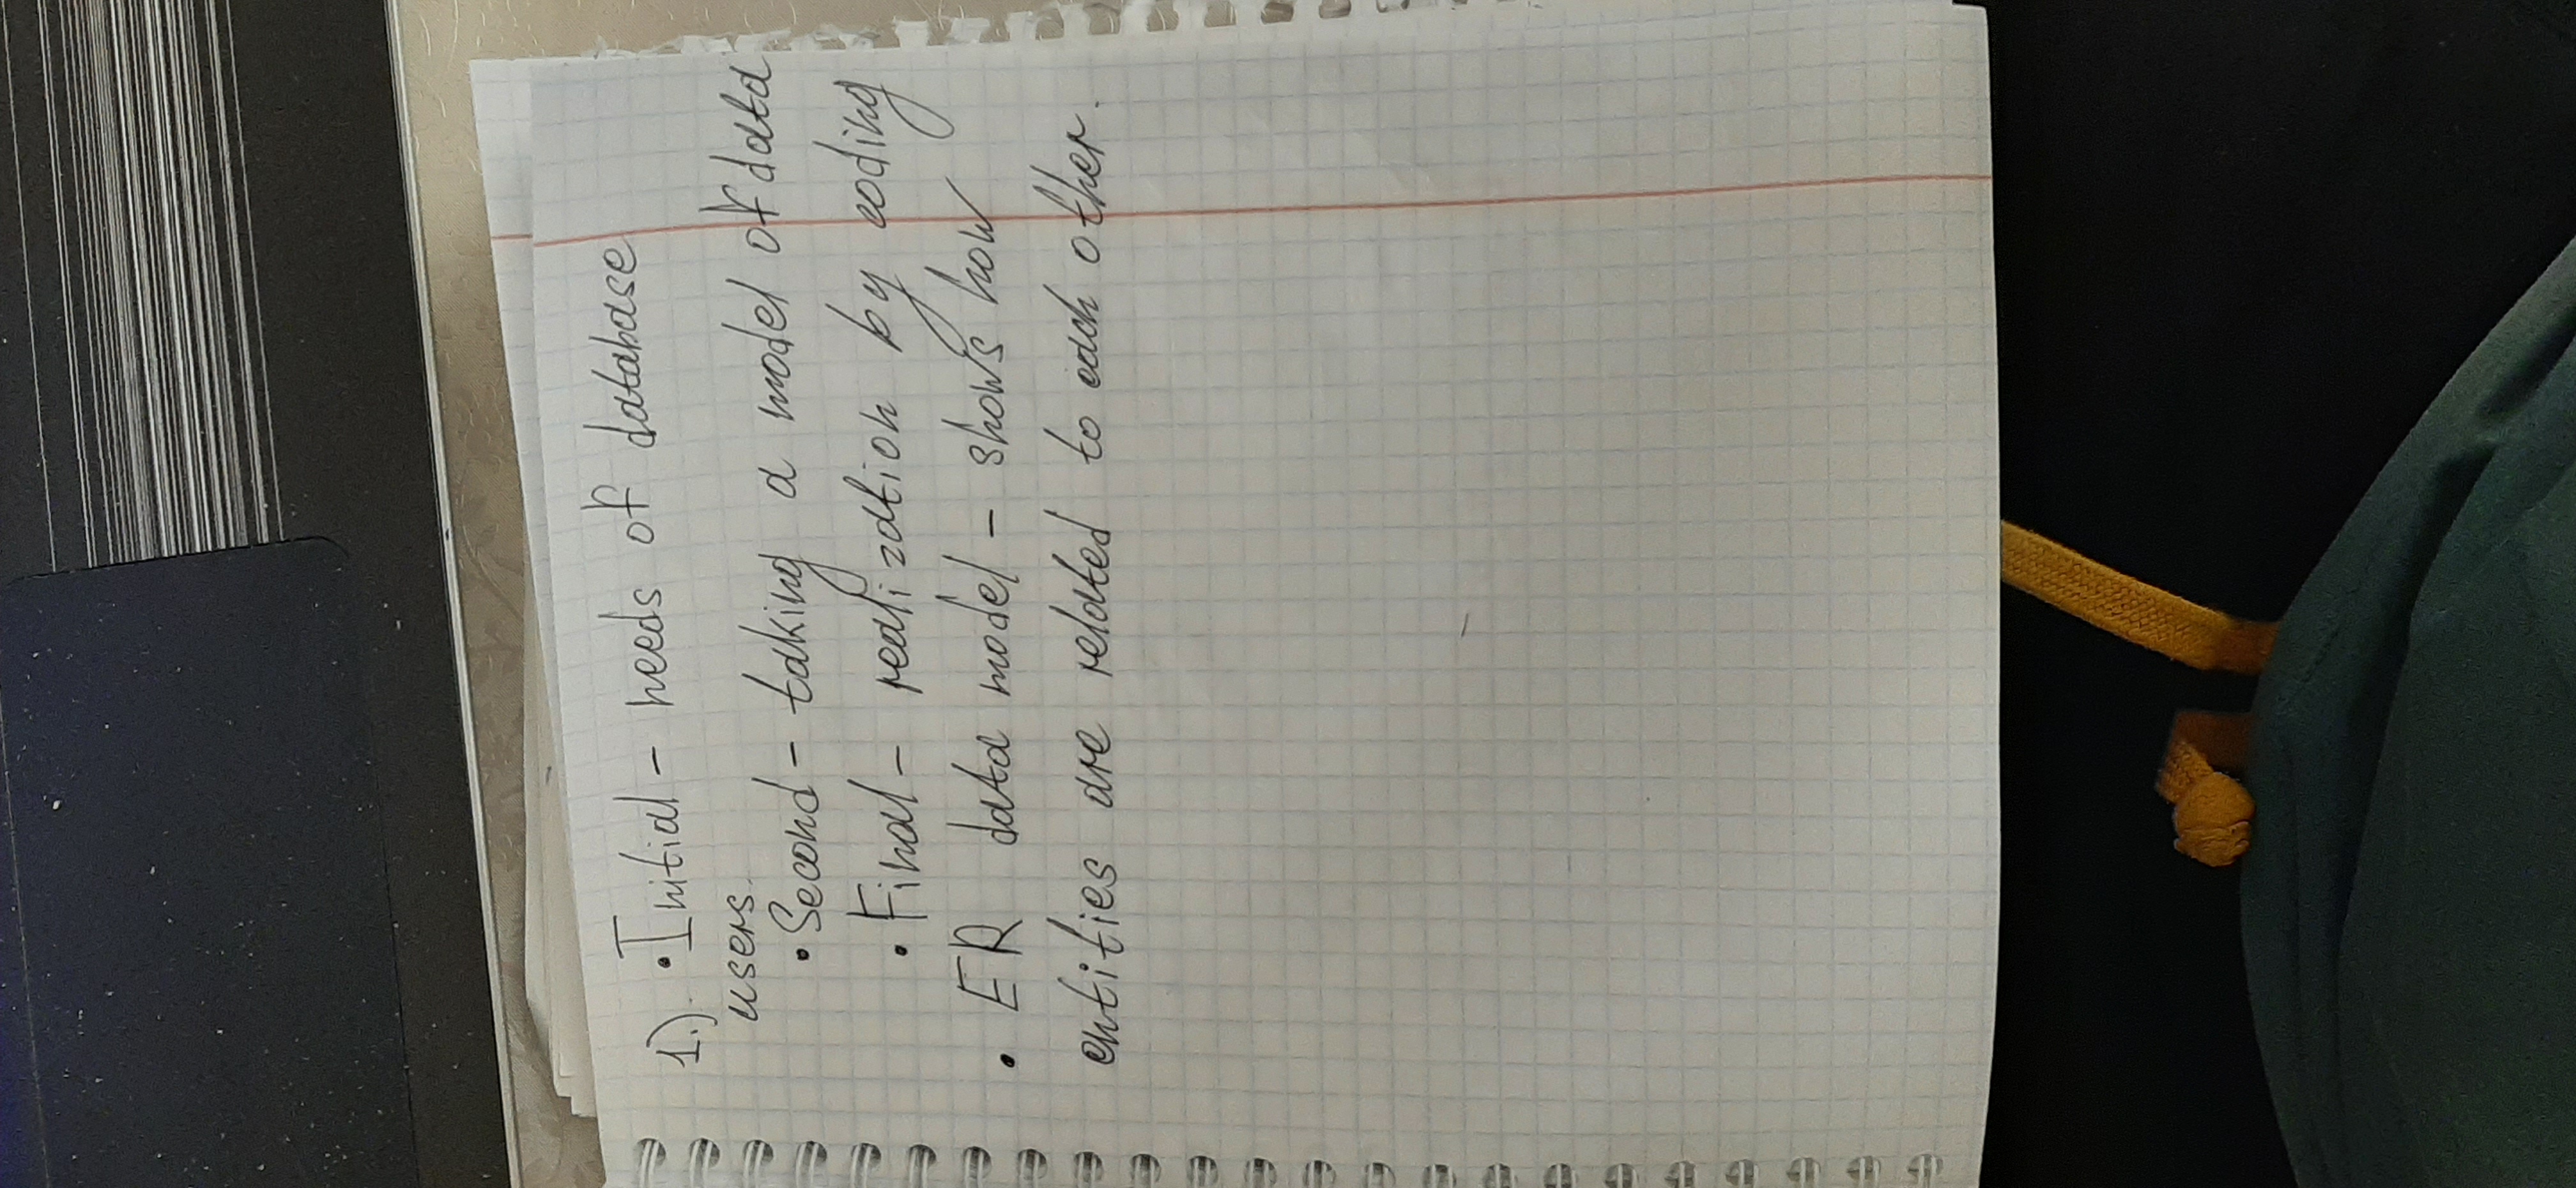 1.). • Initial - needs of database
users.
• Second - taking a model of data
• Final - realization by coding
• ER data model - shows how
entities are related to each other.